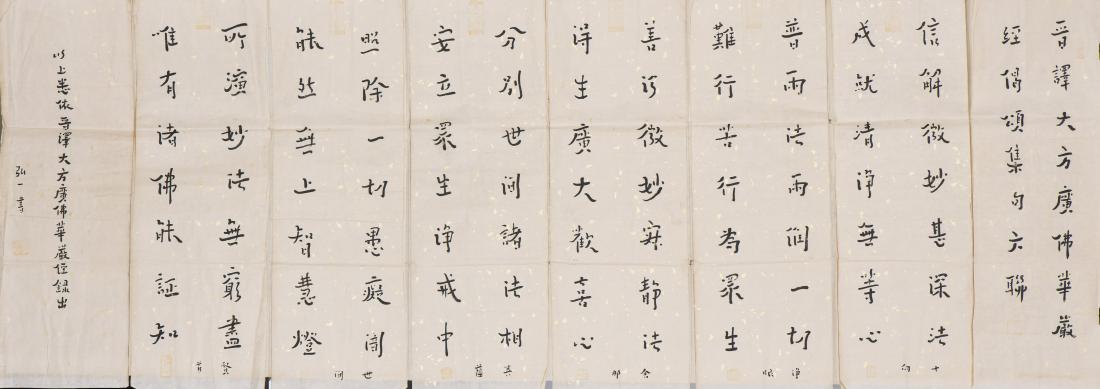 晉譯大方廣佛華嚴
經偈頌集句六聯
信解微妙甚深法
成就清淨無等心
十向
普雨法雨潤一切
難行苦行為眾生
淨眼
善行微妙寂靜法
得生廣大歡喜心
舍那
分別世間諸法相
安立眾生淨戒中
菩薩
照除一切愚癡闇
能然無上智慧燈
世間
所演妙法無窮盡
唯有諸佛能証知
賢首
以上悉依晉譯大方廣佛華嚴經錄出
弘一書